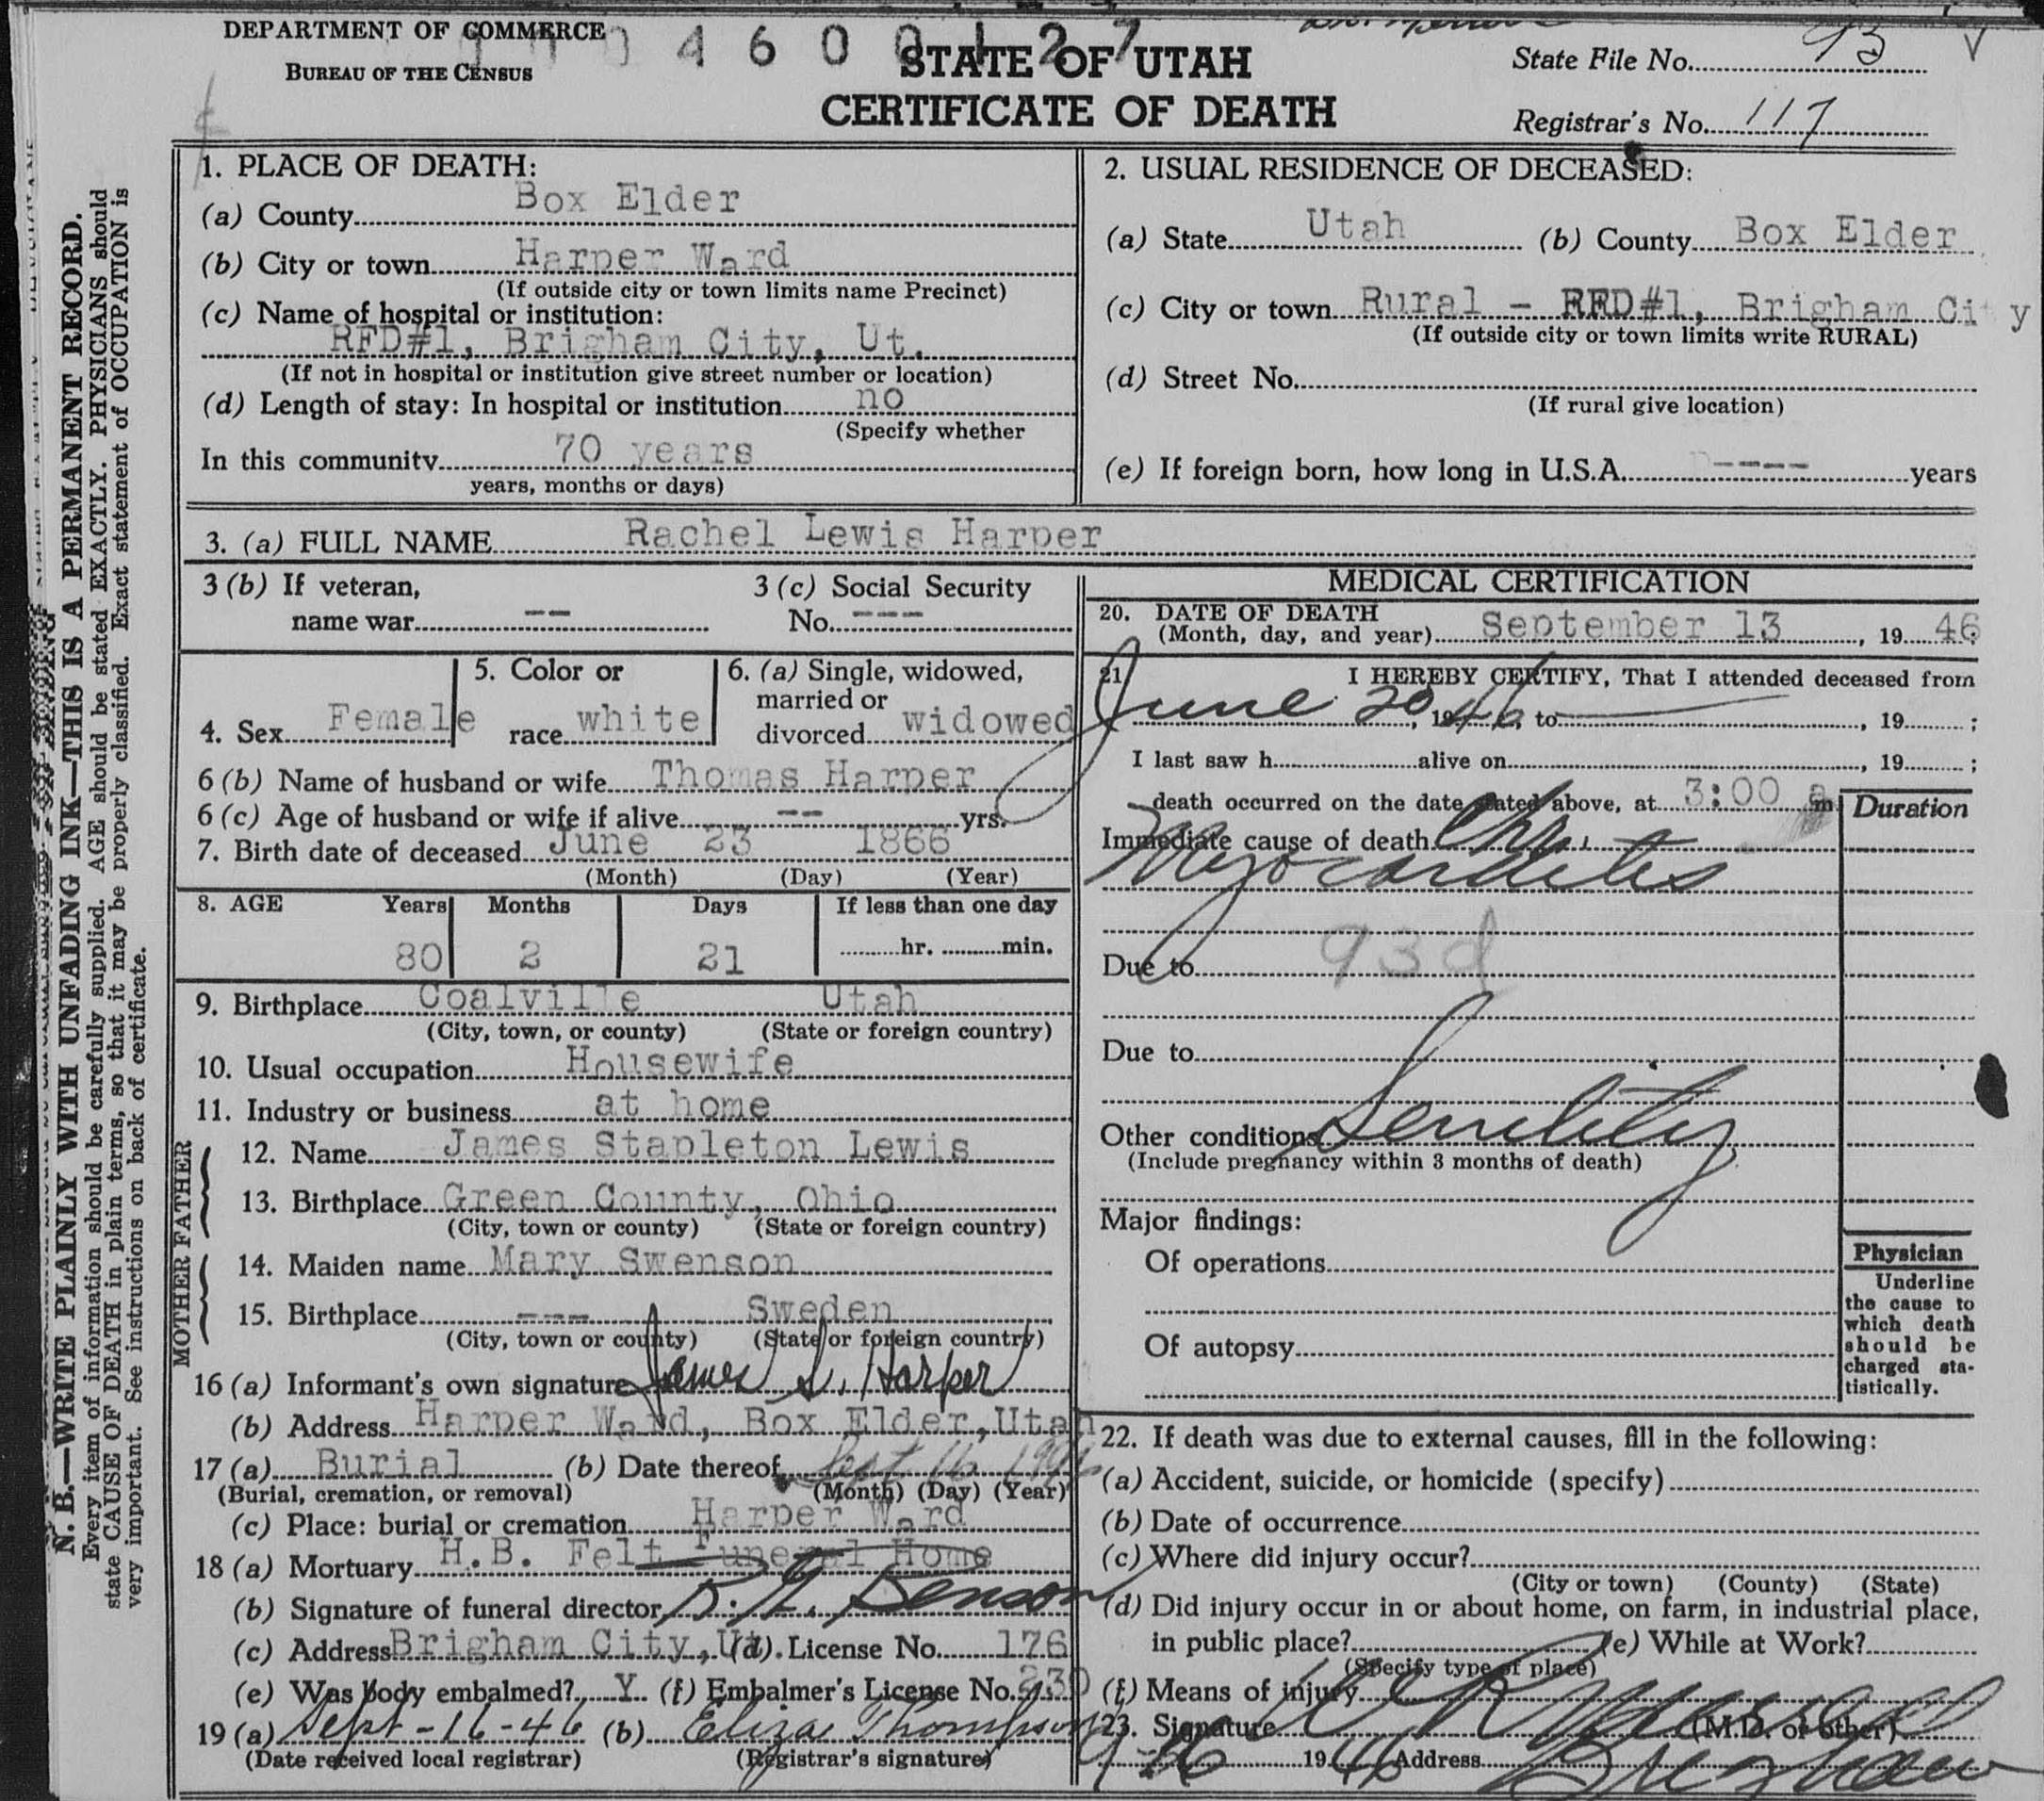 DEPARTMENT OF COMMERCE
BUREAU OF THE CENSUS
4 6 0 0 1 2 7
STATE OF UTAH
CERTIFICATE OF DEATH
State File No. 93
Registrar's No. 117
N. B.—WRITE PLAINLY WITH UNFADING INK—THIS IS A PERMANENT RECORD.
Every item of information should be carefully supplied. AGE should be stated EXACTLY. PHYSICIANS should
state CAUSE OF DEATH in plain terms, so that it may be properly classified. Exact statement of OCCUPATION is
very important. See instructions on back of certificate.
1. PLACE OF DEATH:
(a) County Box Elder
(b) City or town Harper Ward
(If outside city or town limits name Precinct)
(c) Name of hospital or institution:
RFD#1, Brigham City, Ut.
(If not in hospital or institution give street number or location)
(d) Length of stay: In hospital or institution no
(Specify whether
In this community 70 years
years, months or days)
2. USUAL RESIDENCE OF DECEASED:
(a) State Utah (b) County Box Elder
(c) City or town Rural - RFD#1, Brigham City
(If outside city or town limits write RURAL)
(d) Street No.
(If rural give location)
(e) If foreign born, how long in U.S.A. ---- years
3. (a) FULL NAME Rachel Lewis Harper
3 (b) If veteran,
name war --
3 (c) Social Security
No. ---
4. Sex Female
5. Color or
race white
6. (a) Single, widowed,
married or
divorced widowed
6 (b) Name of husband or wife Thomas Harper
6 (c) Age of husband or wife if alive -- yrs.
7. Birth date of deceased June 23 1866
(Month) (Day) (Year)
8. AGE Years Months Days If less than one day
80 2 21 hr. min.
9. Birthplace Coalville Utah
(City, town, or county) (State or foreign country)
10. Usual occupation Housewife
11. Industry or business at home
FATHER
12. Name James Stapleton Lewis
13. Birthplace Green County, Ohio
(City, town or county) (State or foreign country)
MOTHER
14. Maiden name Mary Swenson
15. Birthplace --- Sweden
(City, town or county) (State or foreign country)
16 (a) Informant's own signature James L. Harper
(b) Address Harper Ward, Box Elder, Utah
17 (a) Burial (b) Date thereof Sept 16 1946
(Burial, cremation, or removal) (Month) (Day) (Year)
(c) Place: burial or cremation Harper Ward
18 (a) Mortuary H.B. Felt Funeral Home
(b) Signature of funeral director Benson
(c) Address Brigham City, Ut (d) License No. 176
(e) Was body embalmed? Y (f) Embalmer's License No. 230
19 (a) Sept-16-46 (b) Eliza Thompson
(Date received local registrar) (Registrar's signature)
MEDICAL CERTIFICATION
20. DATE OF DEATH
(Month, day, and year) September 13, 19 46
21. I HEREBY CERTIFY, That I attended deceased from
June 20, 1946, to , 19 ;
I last saw h alive on , 19 ;
death occurred on the date stated above, at 3:00 a m
Duration
Immediate cause of death Chr.
Myocarditis
Due to 93d
Due to
Other conditions Senility
(Include pregnancy within 3 months of death)
Major findings:
Of operations
Of autopsy
Physician
Underline
the cause to
which death
should be
charged sta-
tistically.
22. If death was due to external causes, fill in the following:
(a) Accident, suicide, or homicide (specify)
(b) Date of occurrence
(c) Where did injury occur?
(City or town) (County) (State)
(d) Did injury occur in or about home, on farm, in industrial place,
in public place? (e) While at Work?
(Specify type of place)
(f) Means of injury
23. Signature (M.D. or other)
19 46 Address Brigham